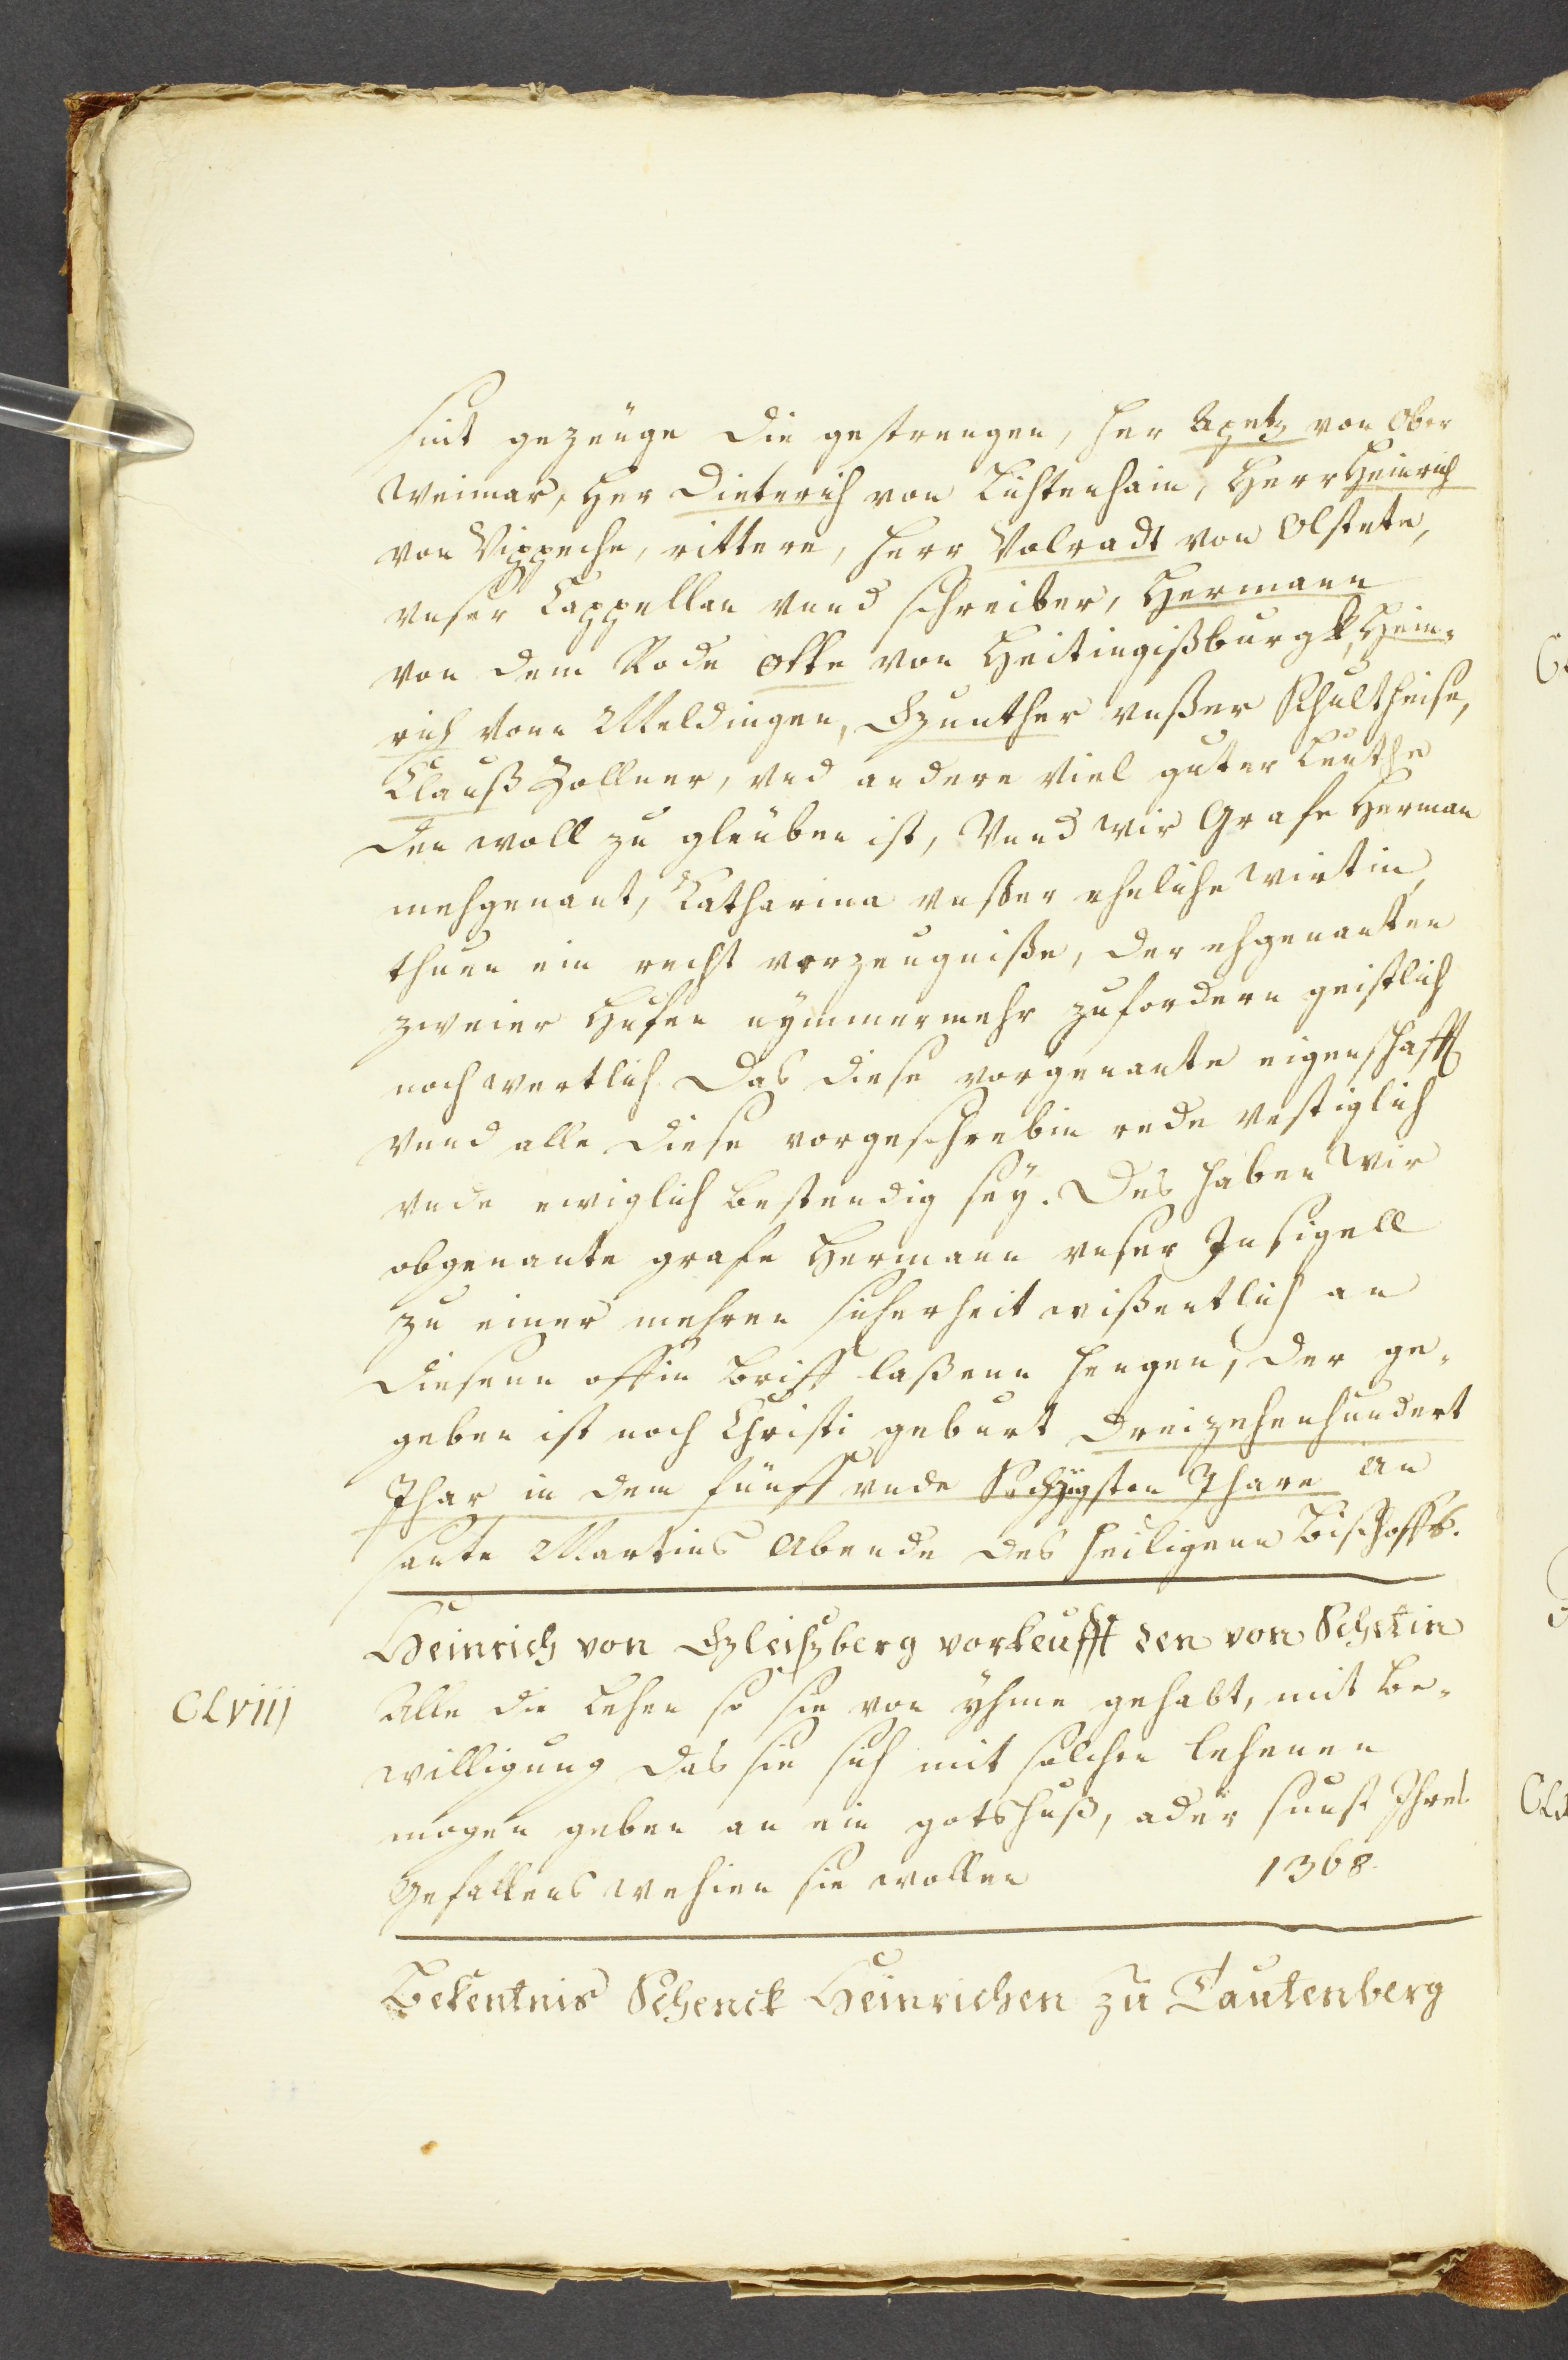 sint gezeuge die gestrengen, her Apetz von Ober
Weimar, Her Dieterich von Lichtenhain, Herr Heinrich
von Vippeche, rittere, herr Volradt von Olstete,
unser Cappellan unnd schreiber, Hermann
von dem Rode Otte von Heitingißburgk, Hein¬
rich vonn Meldingen, Gzunther unßer Schultheise,
Clauß Zollner, und andere Viel guter Leuthe
den woll zu gleuben ist, Vnnd wir Grafe Herman
mehgenant, Katharina unßer eheliche wirtin,
thuen ein recht vorzeugniße, der ehgenanten
zweier Hufen nymmermehr zufordern geistlich
noch wertlich. Das diese vorgenante eigenschafft
vnnd alle diese vorgeschrebin rede vestiglich
vnde ewiglich bestendig sey. Des haben wir
obgenante grafe Hermann unser Insigell
zu einer mehren sicherheit wißentlich an
diesenn offin Briff laßenn hengen, der ge¬
geben ist noch Christi geburt dreizehenhundert
Jhar in dem fünff unde Sechzigsten Jhare an
sante Martins Abende des heiligenn Bischoffs.
Heinrich von Gzleißberg vorkeufft den von Schetin
CLVIII Alle die Lehen so sie von yhme gehabt, mit be¬
willigung das sie sich mit solchen lehenen
mogen geben an ein gotshuß, ader sunst Ihres
Gefallens wehien sie wollen 1368.
Bekentnis Schenck Heinrichen zu Tautenberg